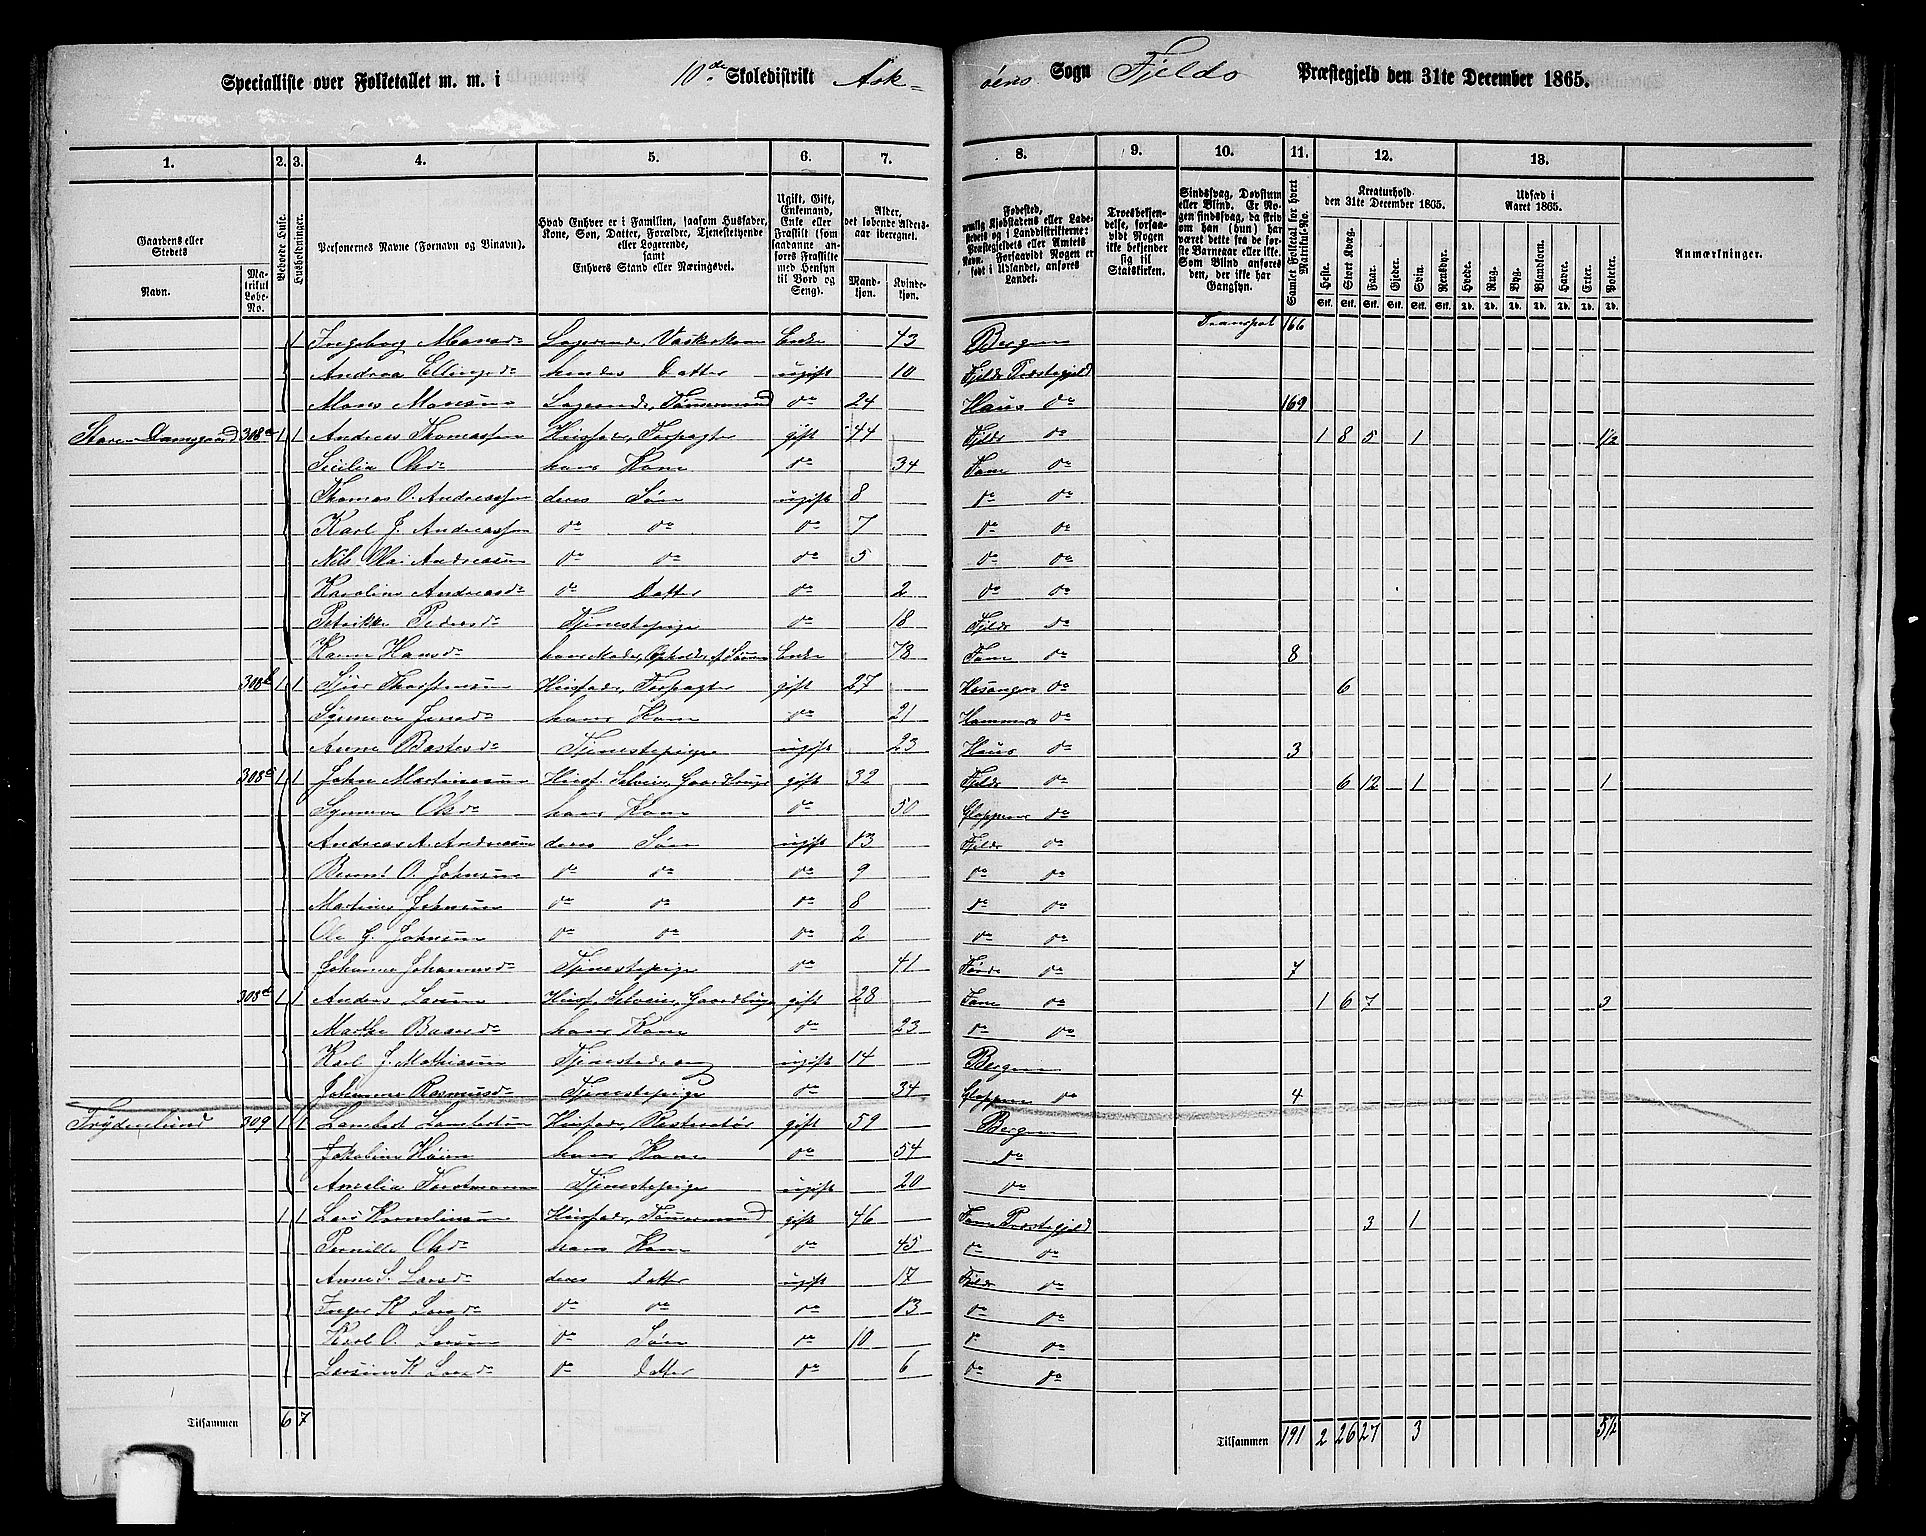 Specialliste over Folketallet m. m. i 10de Skoledistrikt Ask-
øens Sogn Fjelds Præstegjeld den 31te December 1865.
1. 2. 3. 4. 5. 6. 7. 8. 9. 10. 11. 12. 13.
Gaardens eller Stedets Navn.
Matrikul Løbe-No.
Beboede Huse.
Husholdninger.
Personernes Navne (Fornavn og Tilnavn).
Hvad Enhver er i Familien, saasom Husfader, Kone, Søn, Datter, Forældre, Tjenestetyende eller Logerende, samt Enhvers Stand eller Næringsvei.
Ugift, Gift, Enkemand, Enke eller Fraskilt (som saadanne anføres Fraskilte med Hensyn til Bord og Seng).
Alder, det løbende Aldersaar iberegnet.
Mandkjøn. Kvindekjøn.
Fødested, nemlig Kjøbstadens eller Ladestedets og i Landdistrikterne: Præstegjeldets eller Amtets Navn. Forsaavidt Nogen er født i Udlandet, anføres Landet.
Troesbekjendelse, forsaavidt Nogen ikke bekjender sig til Statskirken.
Sindssvag, Døvstum eller Blind. Er Nogen sindssvag, da skriv om han (hun) har været dette fra de første Barneaar eller ikke. Som Blind anføres den, der ikke har Gangsyn.
Samlet Folketal for hvert Matrikul-No.
Kreaturhold den 31te December 1865.
Heste. Stort Kvæg. Faar. Gjeder. Svin. Rensdyr.
Udsæd i Aaret 1865.
Hvede. Rug. Byg. Blandkorn. Havre. Erter. Poteter.
Anmærkninger.
Transport 166
1 Ingeborg Monsdr Logerende, Vaskerkone Enke 43 Bergen
Andrea Ellingsdr hendes Datter ugift 10 Fjelds Præstegjeld
Mons Monssen Logerende, Tømmermand do 24 Haus do 169
Store Damsgaard 308a 1 1 Andreas Thomassen Husfader, Forpagter gift 44 Fjelds do 1 8 5 1 1/2
Sicilia Olsdr hans Kone do 34 Fane do
Thomas O. Andreassen deres Søn ugift 8 do do
Karl J. Andreassen do do do 7 do do
Nils Olai Andreassen do do do 5 do do
Karoline Andreasdr do Datter do 2 do do
Petrikke Pedersdr Tjenestepige do 18 Fjelds do
Karen Hansdr hans Moder, Opholdes af Sønnen Enke 78 Fane do 8
308b 1 1 Sjur Thorstensen Husfader, Forpagter gift 27 Hosanger do 6
Synneve Jensdr hans Kone do 21 Hammer do
Anne Bastesdr Tjenestepige ugift 23 Haus do 3
308c 1 1 John Martinussen Husf. Selveier, Gaardbruger gift 32 Fjelds do 6 12 1 1
Synneve Olsdr hans Kone do 50 Gloppens do
Andreas A. Andreassen deres Søn ugift 13 Fjelds do
Bernt O. Johnsen do do do 9 do do
Martines Johnsen do do do 8 do do
Ole G. Johnsen do do do 2 do do
Johanne Johannesdr Tjenestepige do 41 Førde do 7
308d 1 1 Anders Larsen Husf. Selveier, Gaardbruger gift 28 Fane do 1 6 7 3
Marthe Baarsdr hans Kone do 23 do do
Karl J. Mathiasen Tjenestedreng ugift 14 Bergen
Johanne Rasmusdr Tjenestepige do 34 Gloppens do 4
Frydenlund 309 1 1 Lambert Lambertsen Husfader, Restratør gift 59 Bergen
Jakobine Høien hans Kone do 54 do
Amalia Forstmann Tjenestepige ugift 20 do
1 1 Lars Korneliussen Husfader, Tømmermand gift 46 Fane Præstegjeld 3 1
Pernille Olsdr hans Kone do 45 do do
Anne S. Larsdr deres Datter ugift 17 Fjelds do
Inger K Larsdr do do do 13 do do
Karl O. Larsen do Søn do 10 do do
Larsine K Larsdr do Datter do 6 do do
Tilsammen 6 7
Tilsammen 191 2 26 27 3 5 1/2